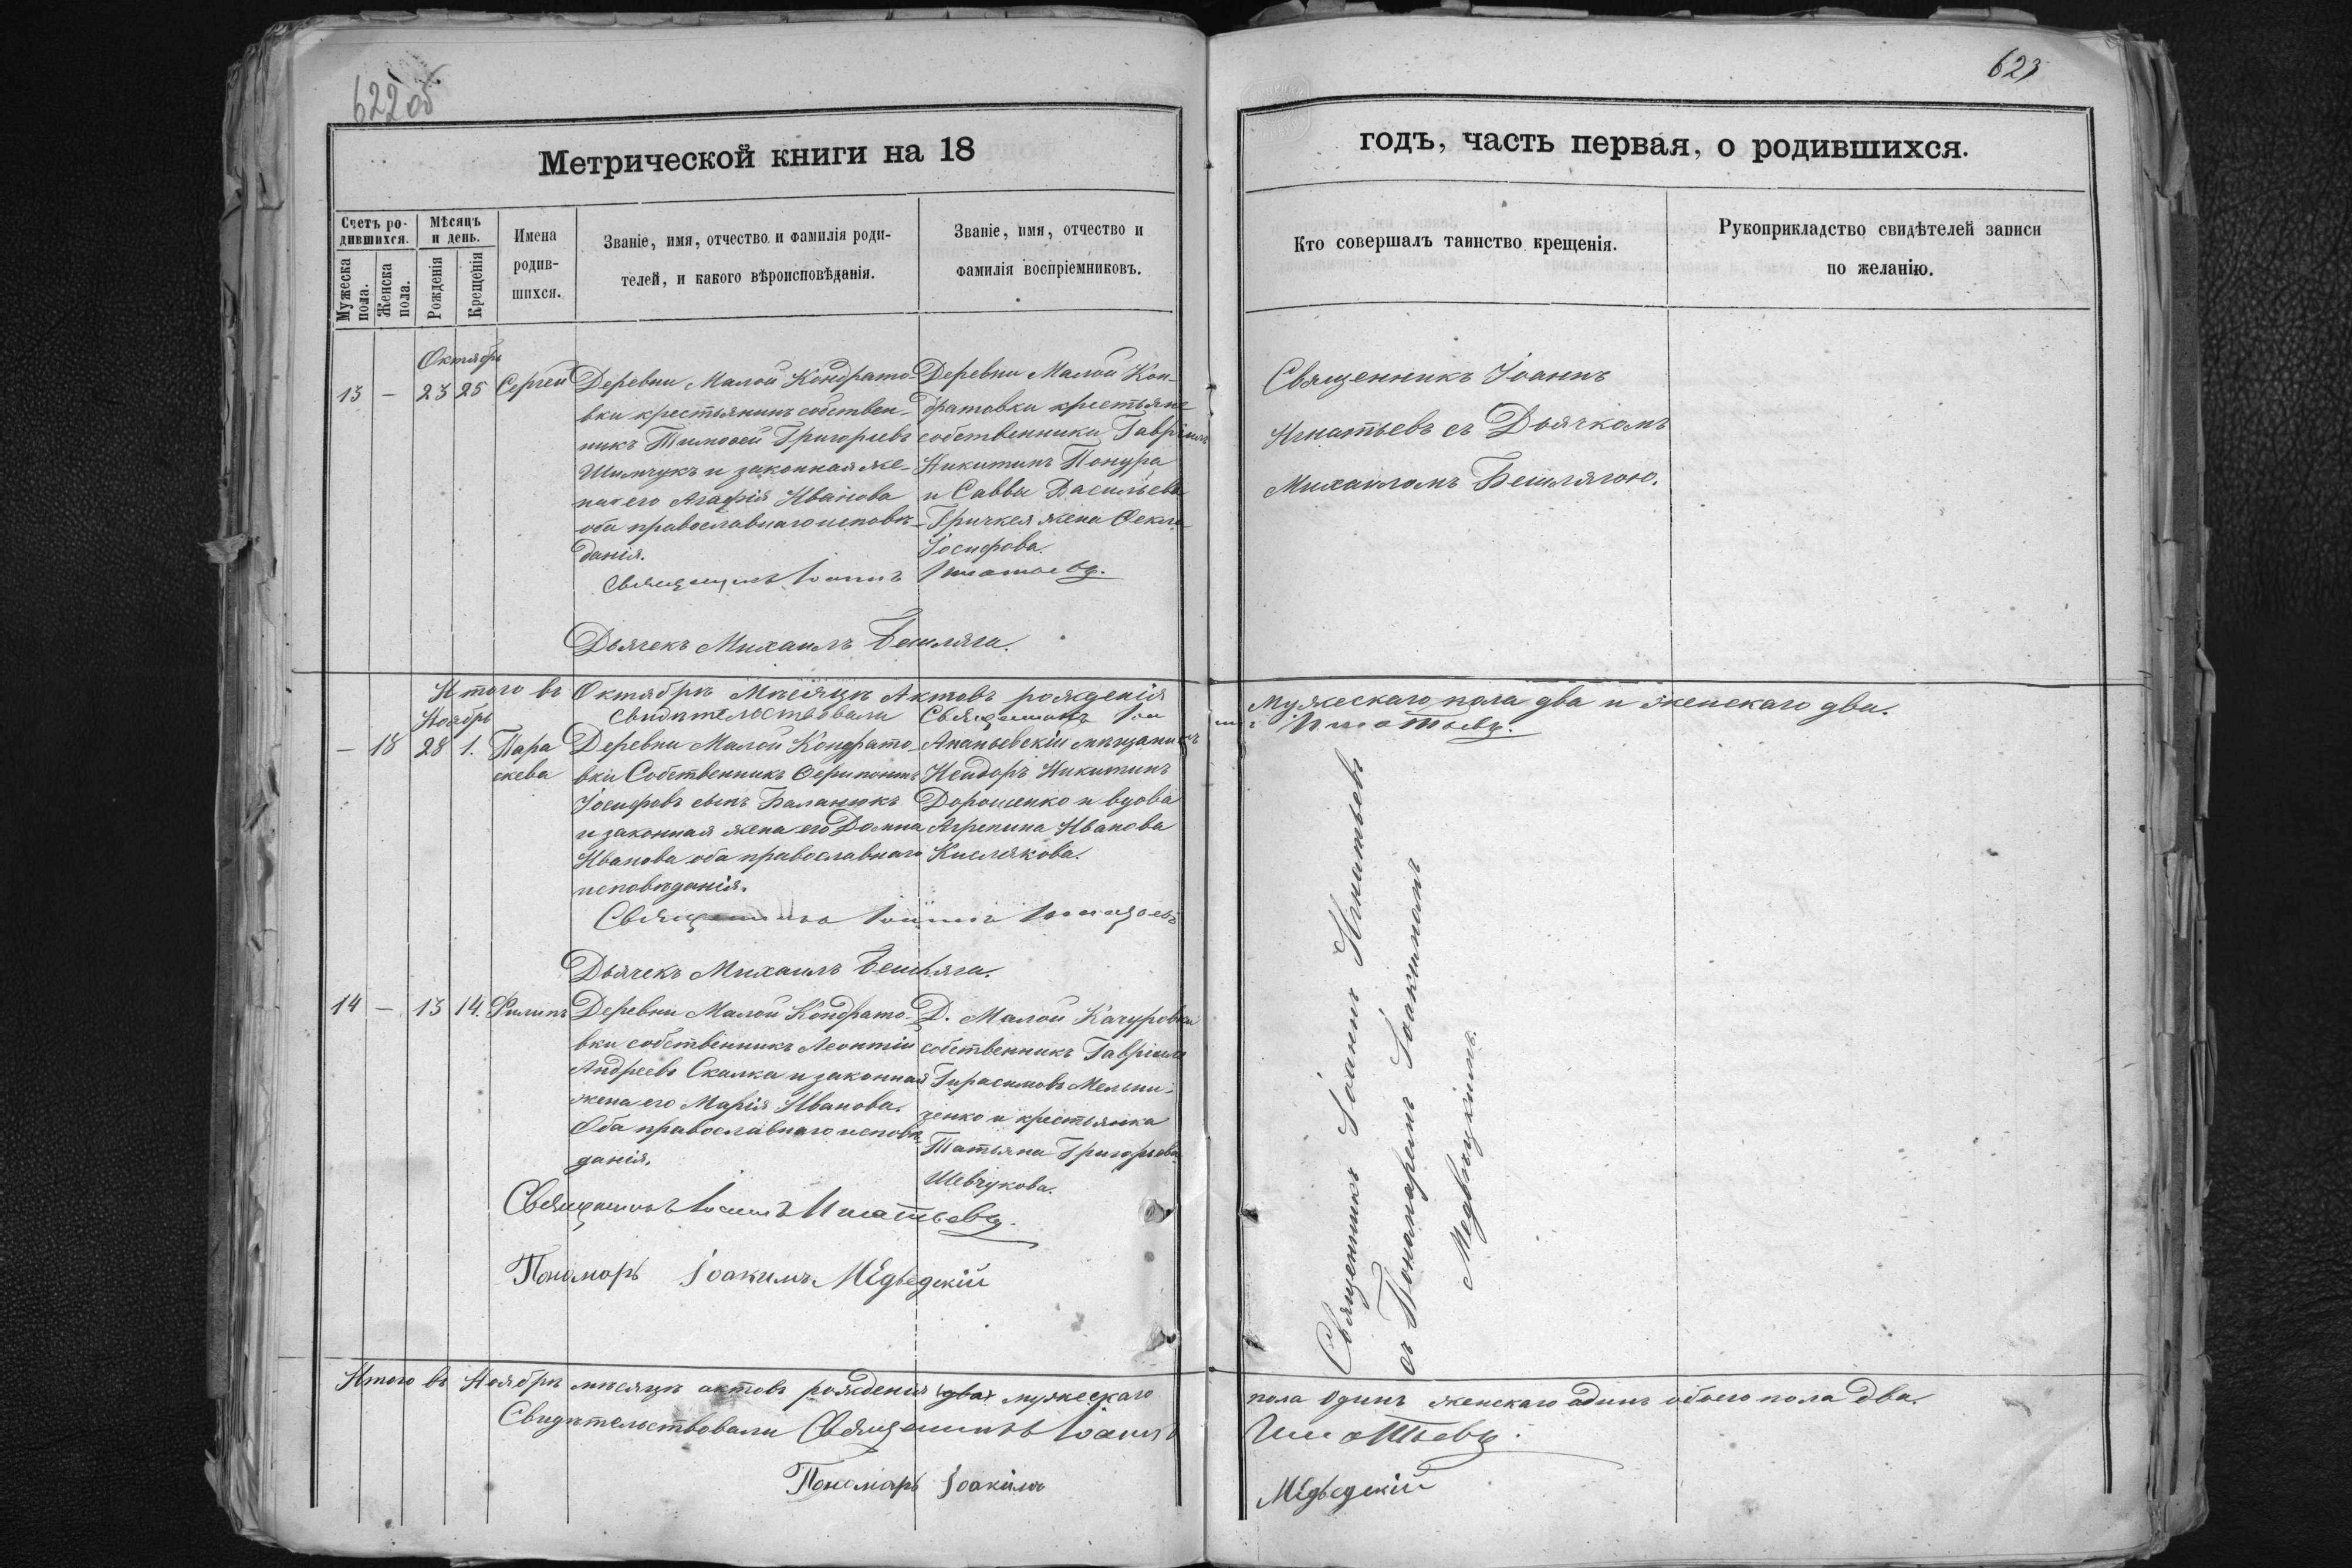 622 об
Метрической книги на 18
Счетъ ро-
дившихся.
Мужеска
пола.
Женска
пола.
Мѣсяцъ
и день.
Рожденія
Крещенія
Имена
родив-
шихся.
Званіе, имя, отчество и фамилія роди-
телей, и какого вѣроисповѣданія.
Званіе, имя, отчество и
фамилія воспріемниковъ.
Октябрь
13 — 23 25 Сергей
Деревни Малой Кондрато-
вки крестьянинъ собствен-
никъ Тимоѳей Григорьевъ
Шимчукъ и законная же-
на его Агафія Иванова
оба православнаго исповѣ-
данія.
Деревни Малой Кон-
дратовки крестьяне
собственники Гавріилъ
Никитинъ Понура
и Саввы Васильева
жена Ѳекла
Іосифова.
Священникъ Іоаннъ Игнатьевъ.
Дьячекъ Михаилъ Бешляга.
Итого въ Октябрѣ Мѣсяцѣ Актовъ рожденія
свидѣтельствовали Священникъ Іоан
Ноябрь
— 18 28 1. Пара
скева
Деревни Малой Кондрато-
вки Собственникъ Ѳерапонтъ
Іосифовъ сынъ Баланюкъ
и законная жена его Домна
Иванова оба православнаго
исповѣданія.
Ананьевскій мѣщанинъ
Исидоръ Никитинъ
Дорошенко и вдова
Агрепина Иванова
Кислякова.
Священникъ Іоаннъ Игнатьевъ
Дьячекъ Михаилъ Бешляга.
14 — 13 14. Филипъ
Деревни Малой Кондрато-
вки собственникъ Леонтій
Андреевъ Скалка и законная
жена его Марія Иванова.
Оба православнаго исповѣ-
данія.
Д. Малой Качуровки
собственникъ Гавріилъ
Гирасимовъ Мельни-
ченко и крестьянка
Татьяна Григорьева
Шевчукова.
Священникъ Іоаннъ Игнатьевъ.
Пономарь Іоакимъ Медведскій
Итого въ Ноябрѣ мѣсяцѣ актовъ рожденія два мужескаго
Свидѣтельствовали Священникъ Іоаннъ
Пономарь Іоакимъ
623
годъ, часть первая, о родившихся.
Кто совершалъ таинство крещенія.
Рукоприкладство свидѣтелей записи
по желанію.
Священникъ Іоаннъ
Игнатьевъ съ Дьячкомъ
Михаиломъ Бешлягою.
мужескаго пола два и женскаго два.
Игнатьевъ.
Священникъ Іоаннъ Игнатьевъ
съ Пономаремъ Іоакимомъ
Медвѣцкимъ.
пола одинъ женскаго одинъ обоего пола два.
Игнатьевъ.
Медведскій